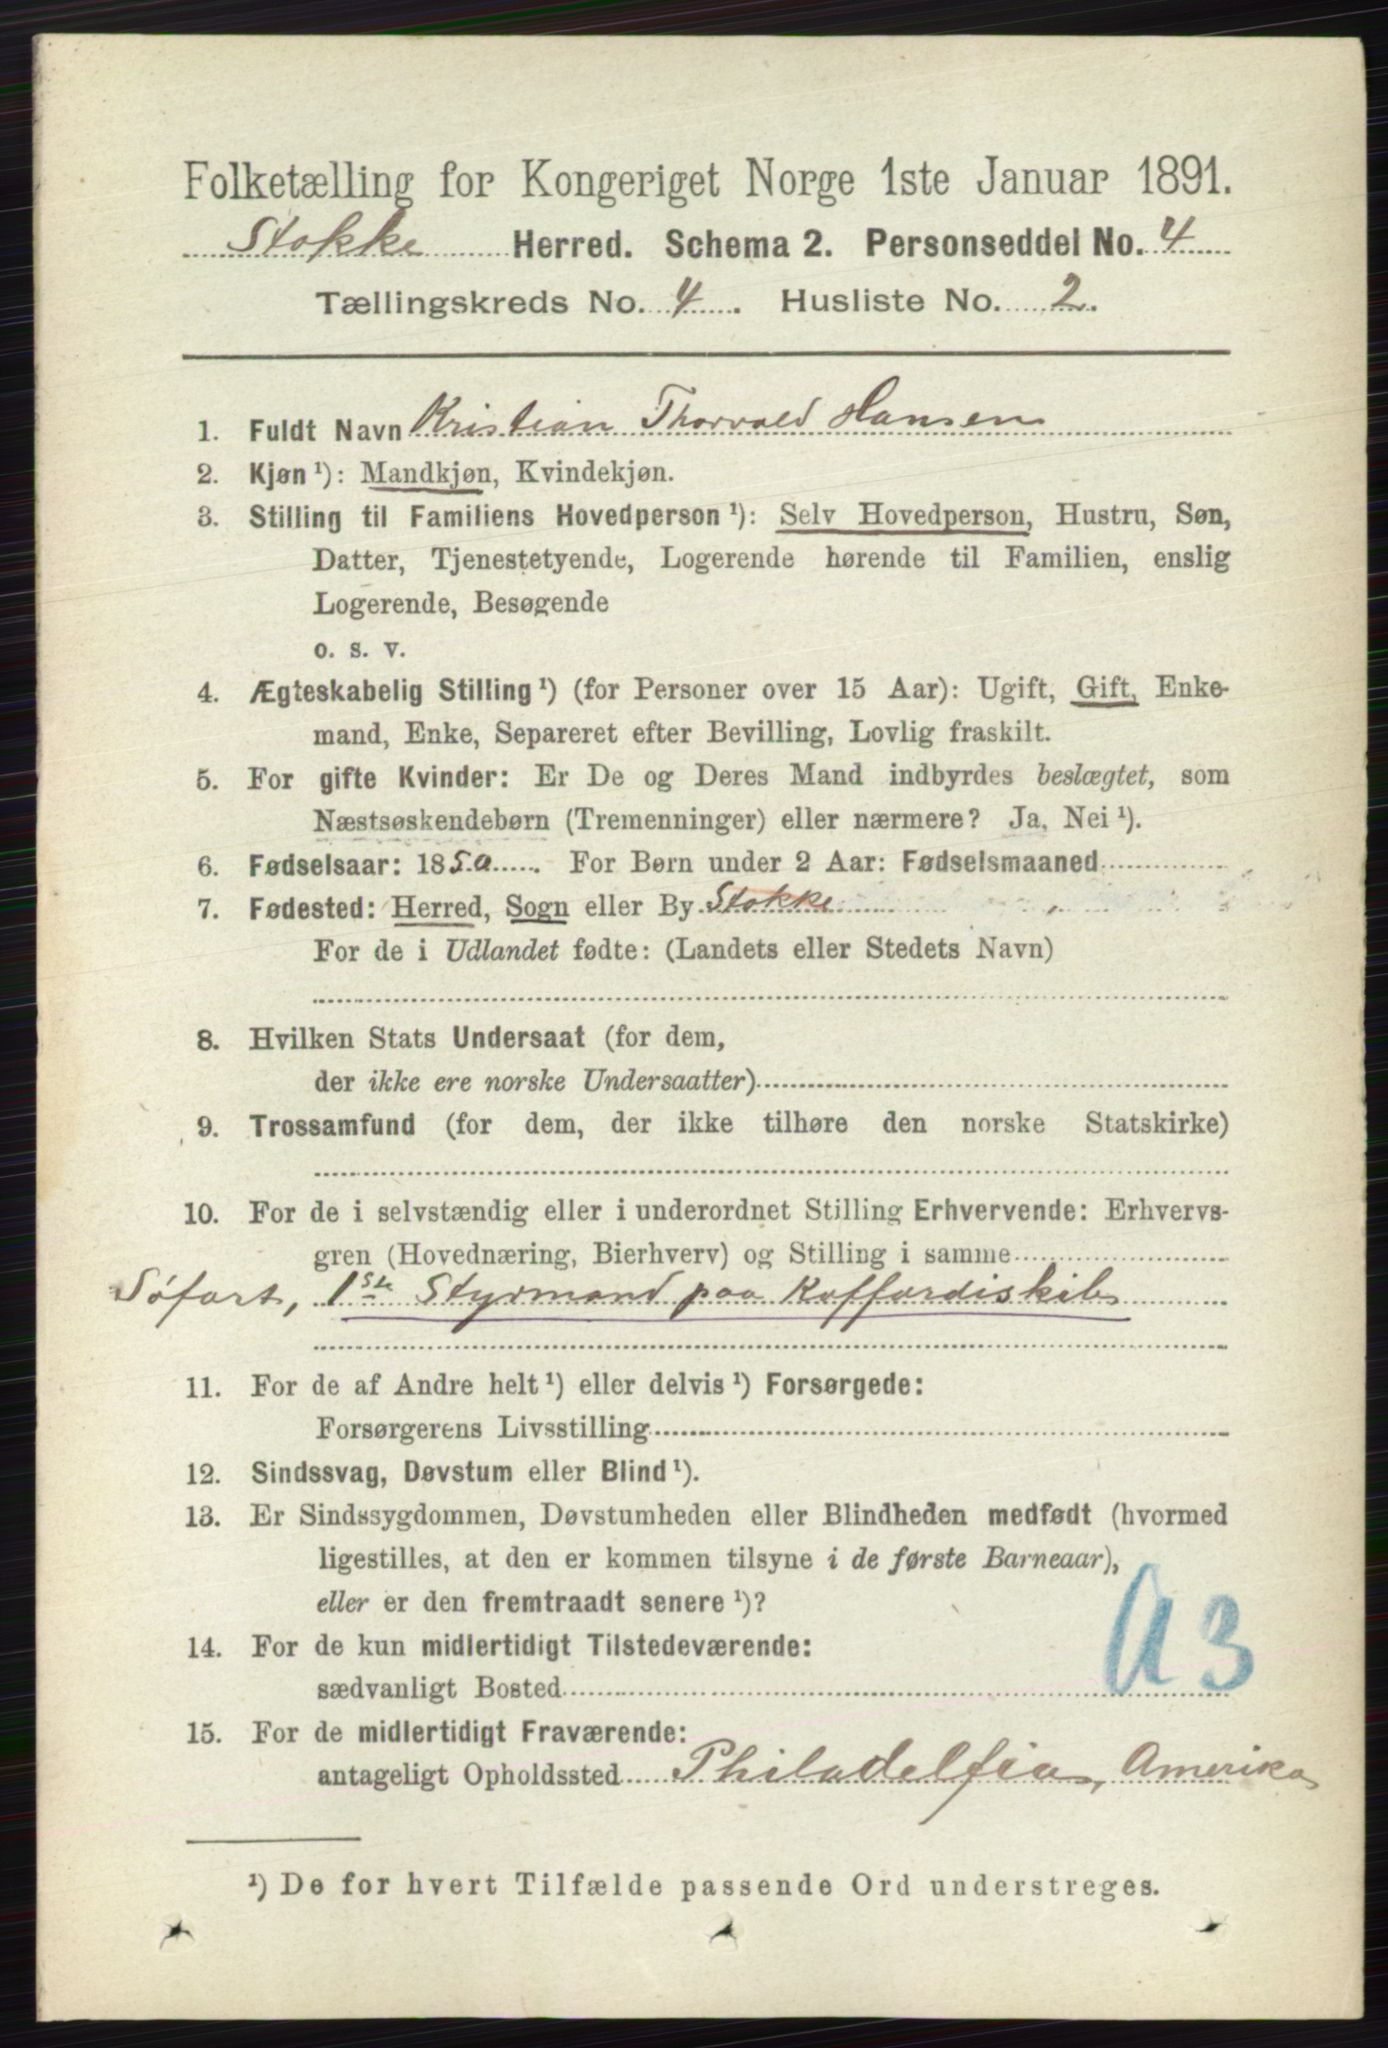 Folketælling for Kongeriget Norge 1ste Januar 1891.
Stokke Herred. Schema 2. Personseddel No. 4
Tællingskreds No. 4. Husliste No. 2.
1. Fuldt Navn Kristian Thorvald Hansen
2. Kjøn¹): Mandkjøn, Kvindekjøn.
3. Stilling til Familiens Hovedperson¹): Selv Hovedperson, Hustru, Søn,
Datter, Tjenestetyende, Logerende hørende til Familien, enslig
Logerende, Besøgende
o. s. v.
4. Ægteskabelig Stilling¹) (for Personer over 15 Aar): Ugift, Gift, Enke-
mand, Enke, Separeret efter Bevilling, Lovlig fraskilt.
5. For gifte Kvinder: Er De og Deres Mand indbyrdes beslægtet, som
Næstsøskendebørn (Tremenninger) eller nærmere? Ja, Nei¹).
6. Fødselsaar: 1850. For Børn under 2 Aar: Fødselsmaaned
7. Fødested: Herred, Sogn eller By Stokke
For de i Udlandet fødte: (Landets eller Stedets Navn)
8. Hvilken Stats Undersaat (for dem,
der ikke ere norske Undersaatter)
9. Trossamfund (for dem, der ikke tilhøre den norske Statskirke)
10. For de i selvstændig eller i underordnet Stilling Erhvervende: Erhvervs-
gren (Hovednæring, Bierhverv) og Stilling i samme
Søfart, 1ste Styrmand paa Koffardiskib
11. For de af Andre helt¹) eller delvis¹) Forsørgede:
Forsørgerens Livsstilling
12. Sindssvag, Døvstum eller Blind¹).
13. Er Sindssygdommen, Døvstumheden eller Blindheden medfødt (hvormed
ligestilles, at den er kommen tilsyne i de første Barneaar),
eller er den fremtraadt senere¹)?
14. For de kun midlertidigt Tilstedeværende:
sædvanligt Bosted
A3
15. For de midlertidigt Fraværende:
antageligt Opholdssted Philadelfia, Amerika
¹) De for hvert Tilfælde passende Ord understreges.